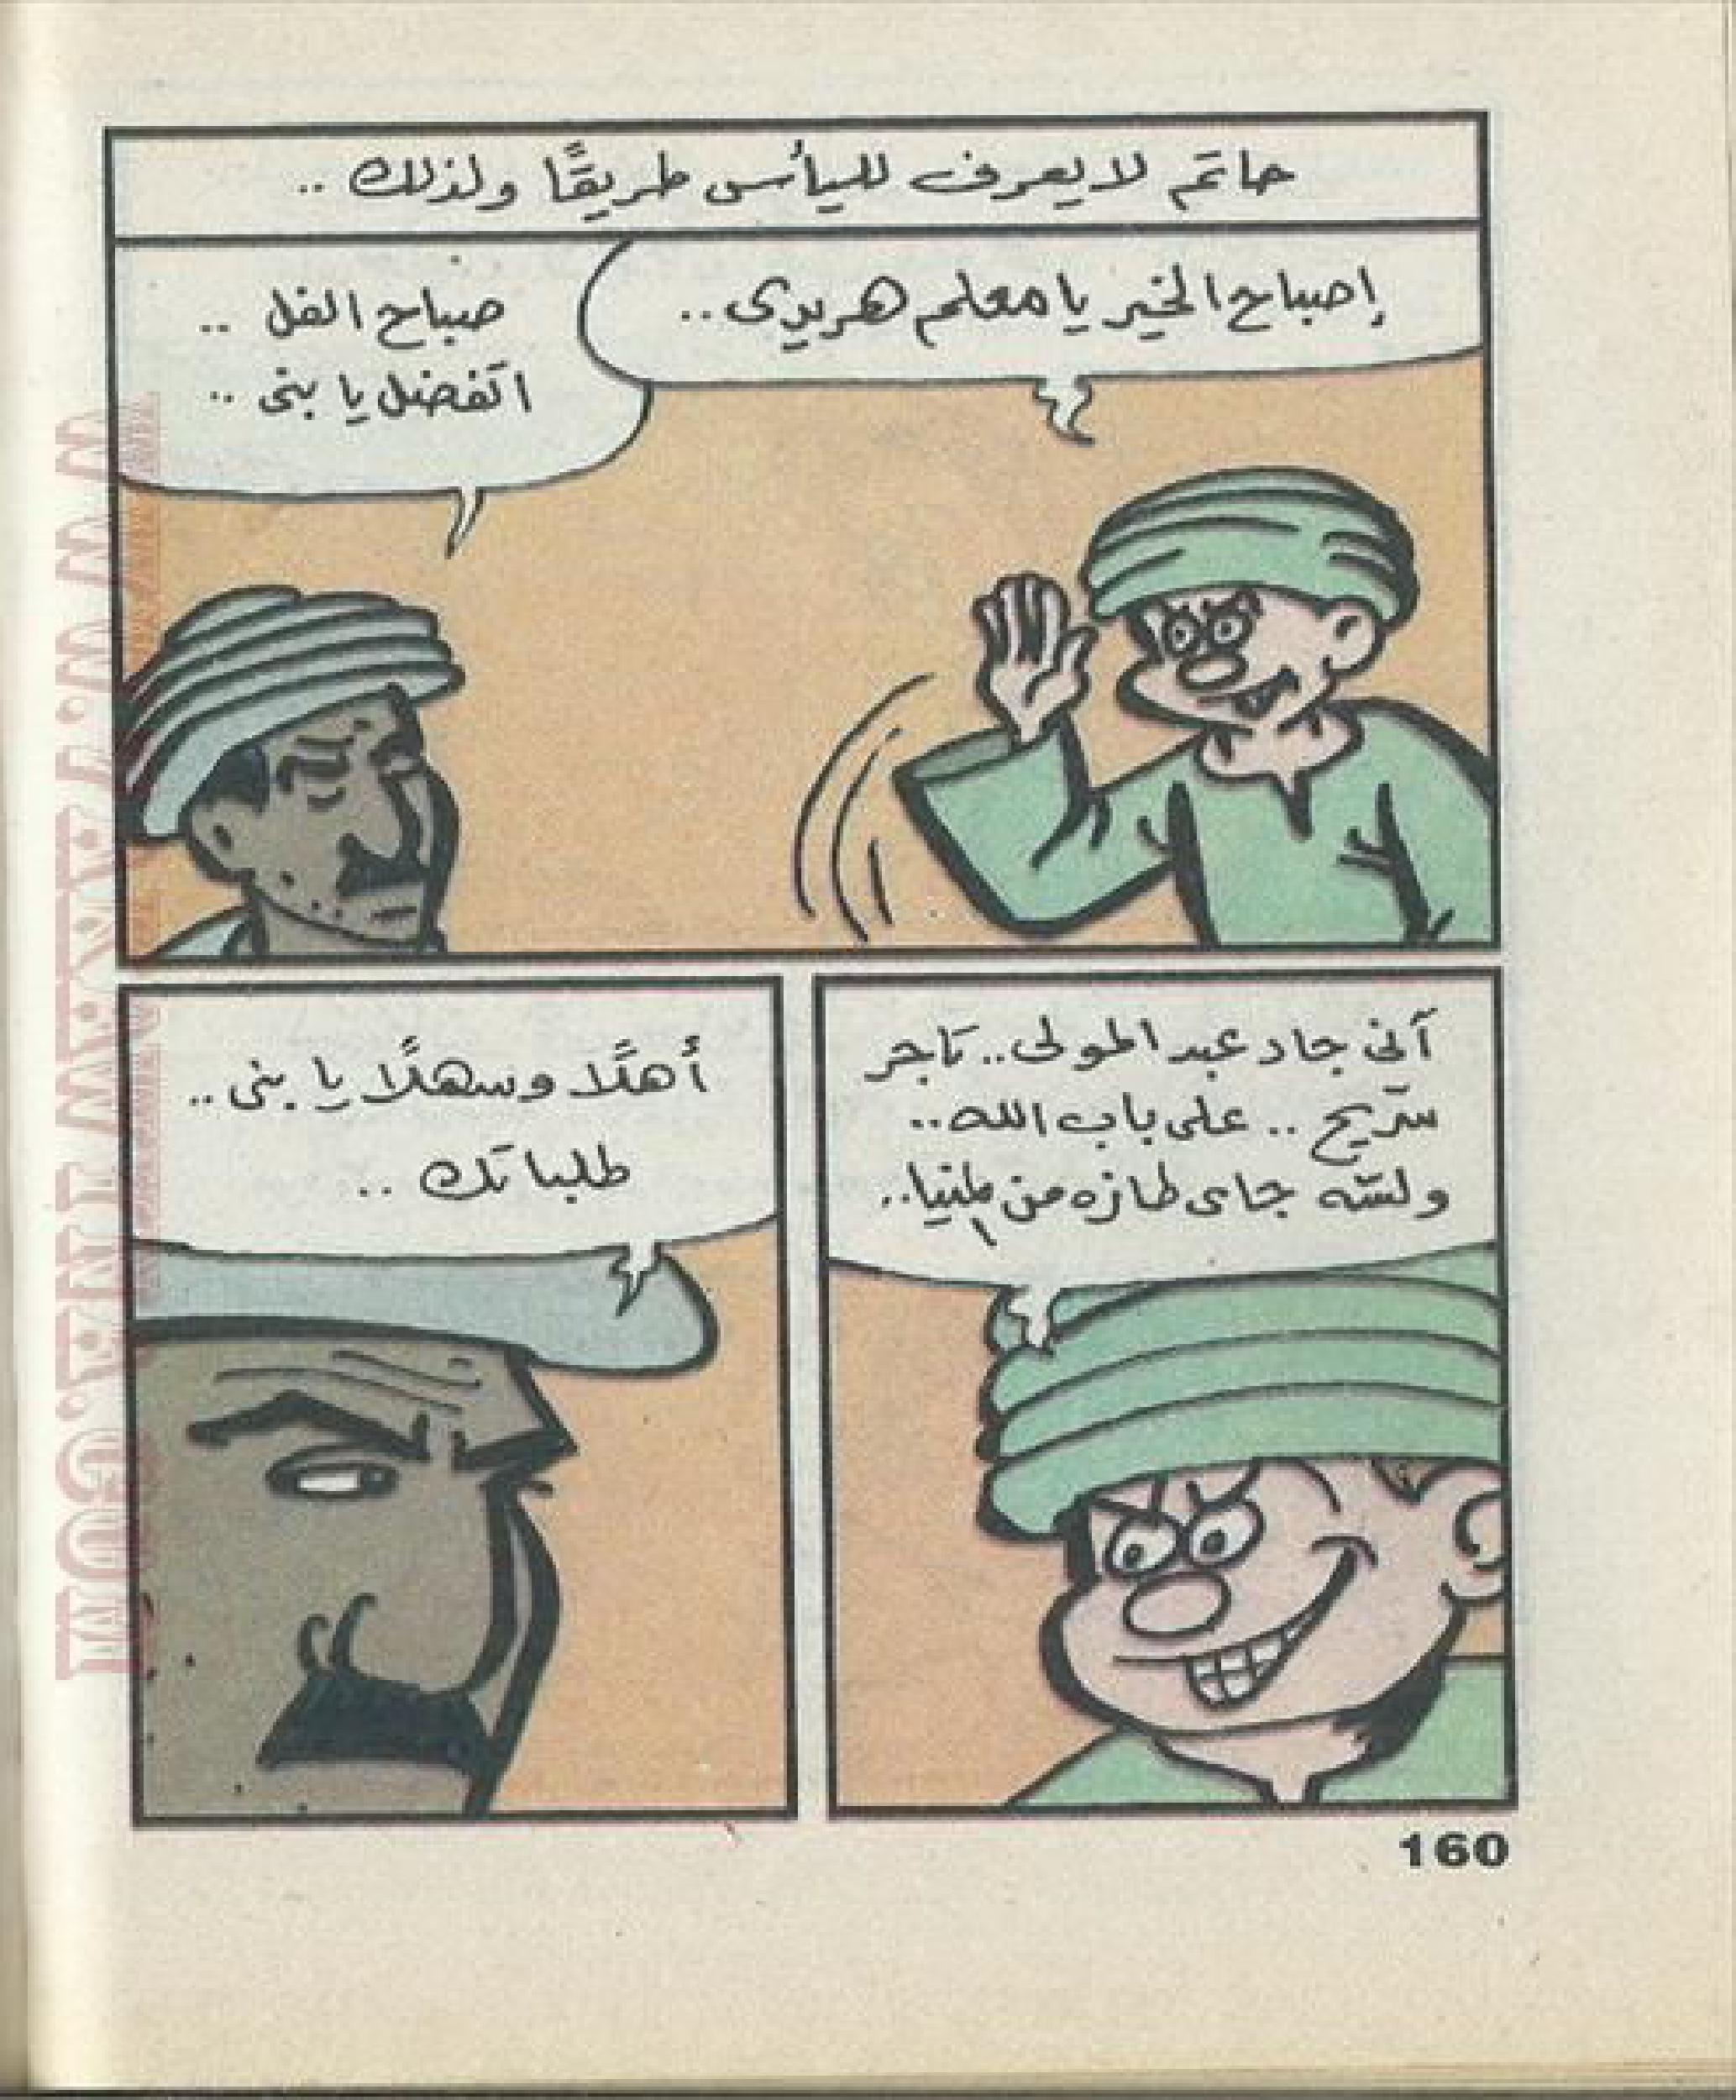 حاتم لا يعرف لليأس طريقًا ولذلك ..
إصباح الخير يا معلم هريدى ..
صباح الفل ..
اتفضل يا بنى ..
آنى جاد عبد المولى .. تاجر
سرّيح .. على باب الله ..
ولسّه جاى طازه من المنيا ..
أهلًا وسهلًا يا بنى ..
طلباتك ..
160